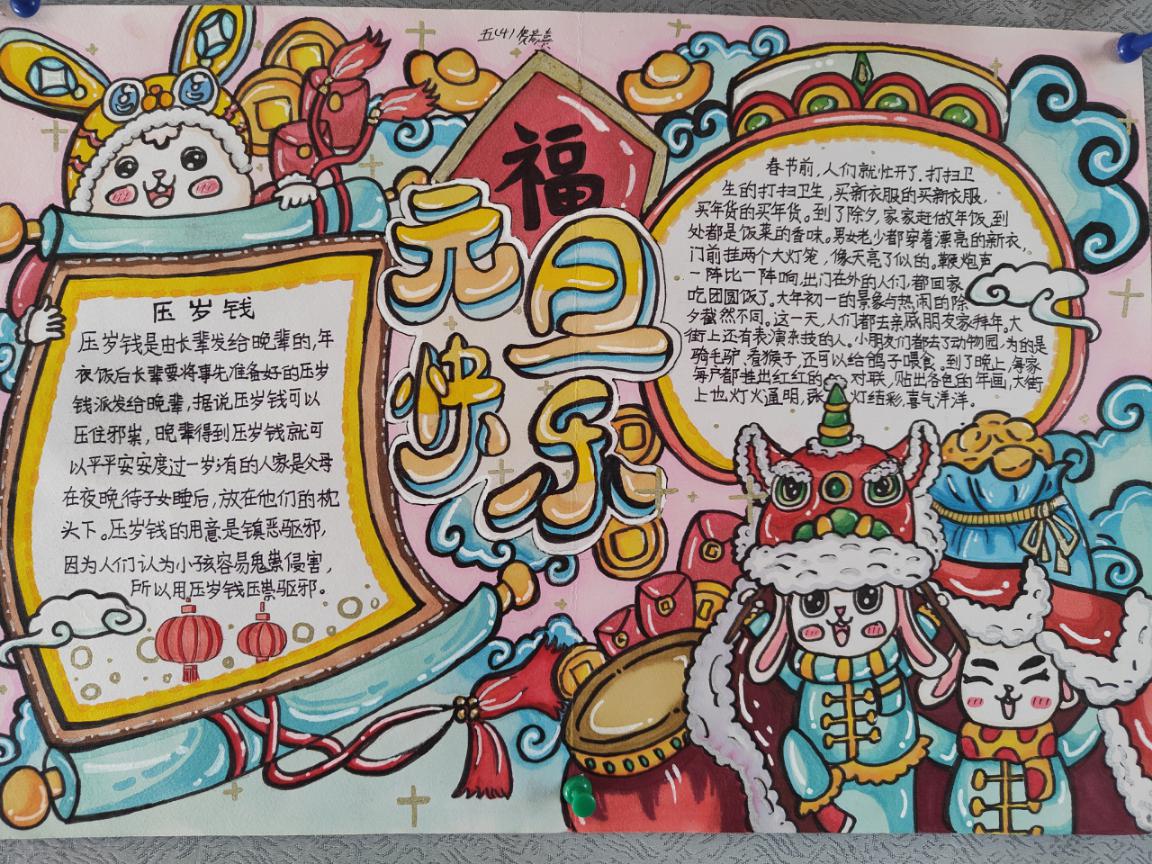 五(4)
福
元旦
快乐
压岁钱
压岁钱是由长辈发给晚辈的,年
夜饭后长辈要将事先准备好的压岁
钱派发给晚辈,据说压岁钱可以
压住邪祟,晚辈得到压岁钱就可
以平平安安度过一岁,有的人家是父母
在夜晚待子女睡后,放在他们的枕
头下。压岁钱的用意是镇恶驱邪,
因为人们认为小孩容易鬼祟侵害,
所以用压岁钱压祟驱邪。
春节前,人们就忙开了,打扫卫
生的打扫卫生,买新衣服的买新衣服,
买年货的买年货。到了除夕,家家赶做年饭,到
处都是饭菜的香味。男女老少都穿着漂亮的新衣,
门前挂两个大灯笼,像天亮了似的。鞭炮声
一阵比一阵响,出门在外的人们,都回家
吃团圆饭了。大年初一的景象与热闹的除
夕截然不同。这一天,人们都去亲戚朋友家拜年。大
街上还有表演杂技的人。小朋友们都去了动物园,为的是
骑毛驴,看猴子,还可以给鸽子喂食。到了晚上,每家
每户都挂出红红的 对联,贴出各色的年画,大街
上也灯火通明, 灯结彩,喜气洋洋。